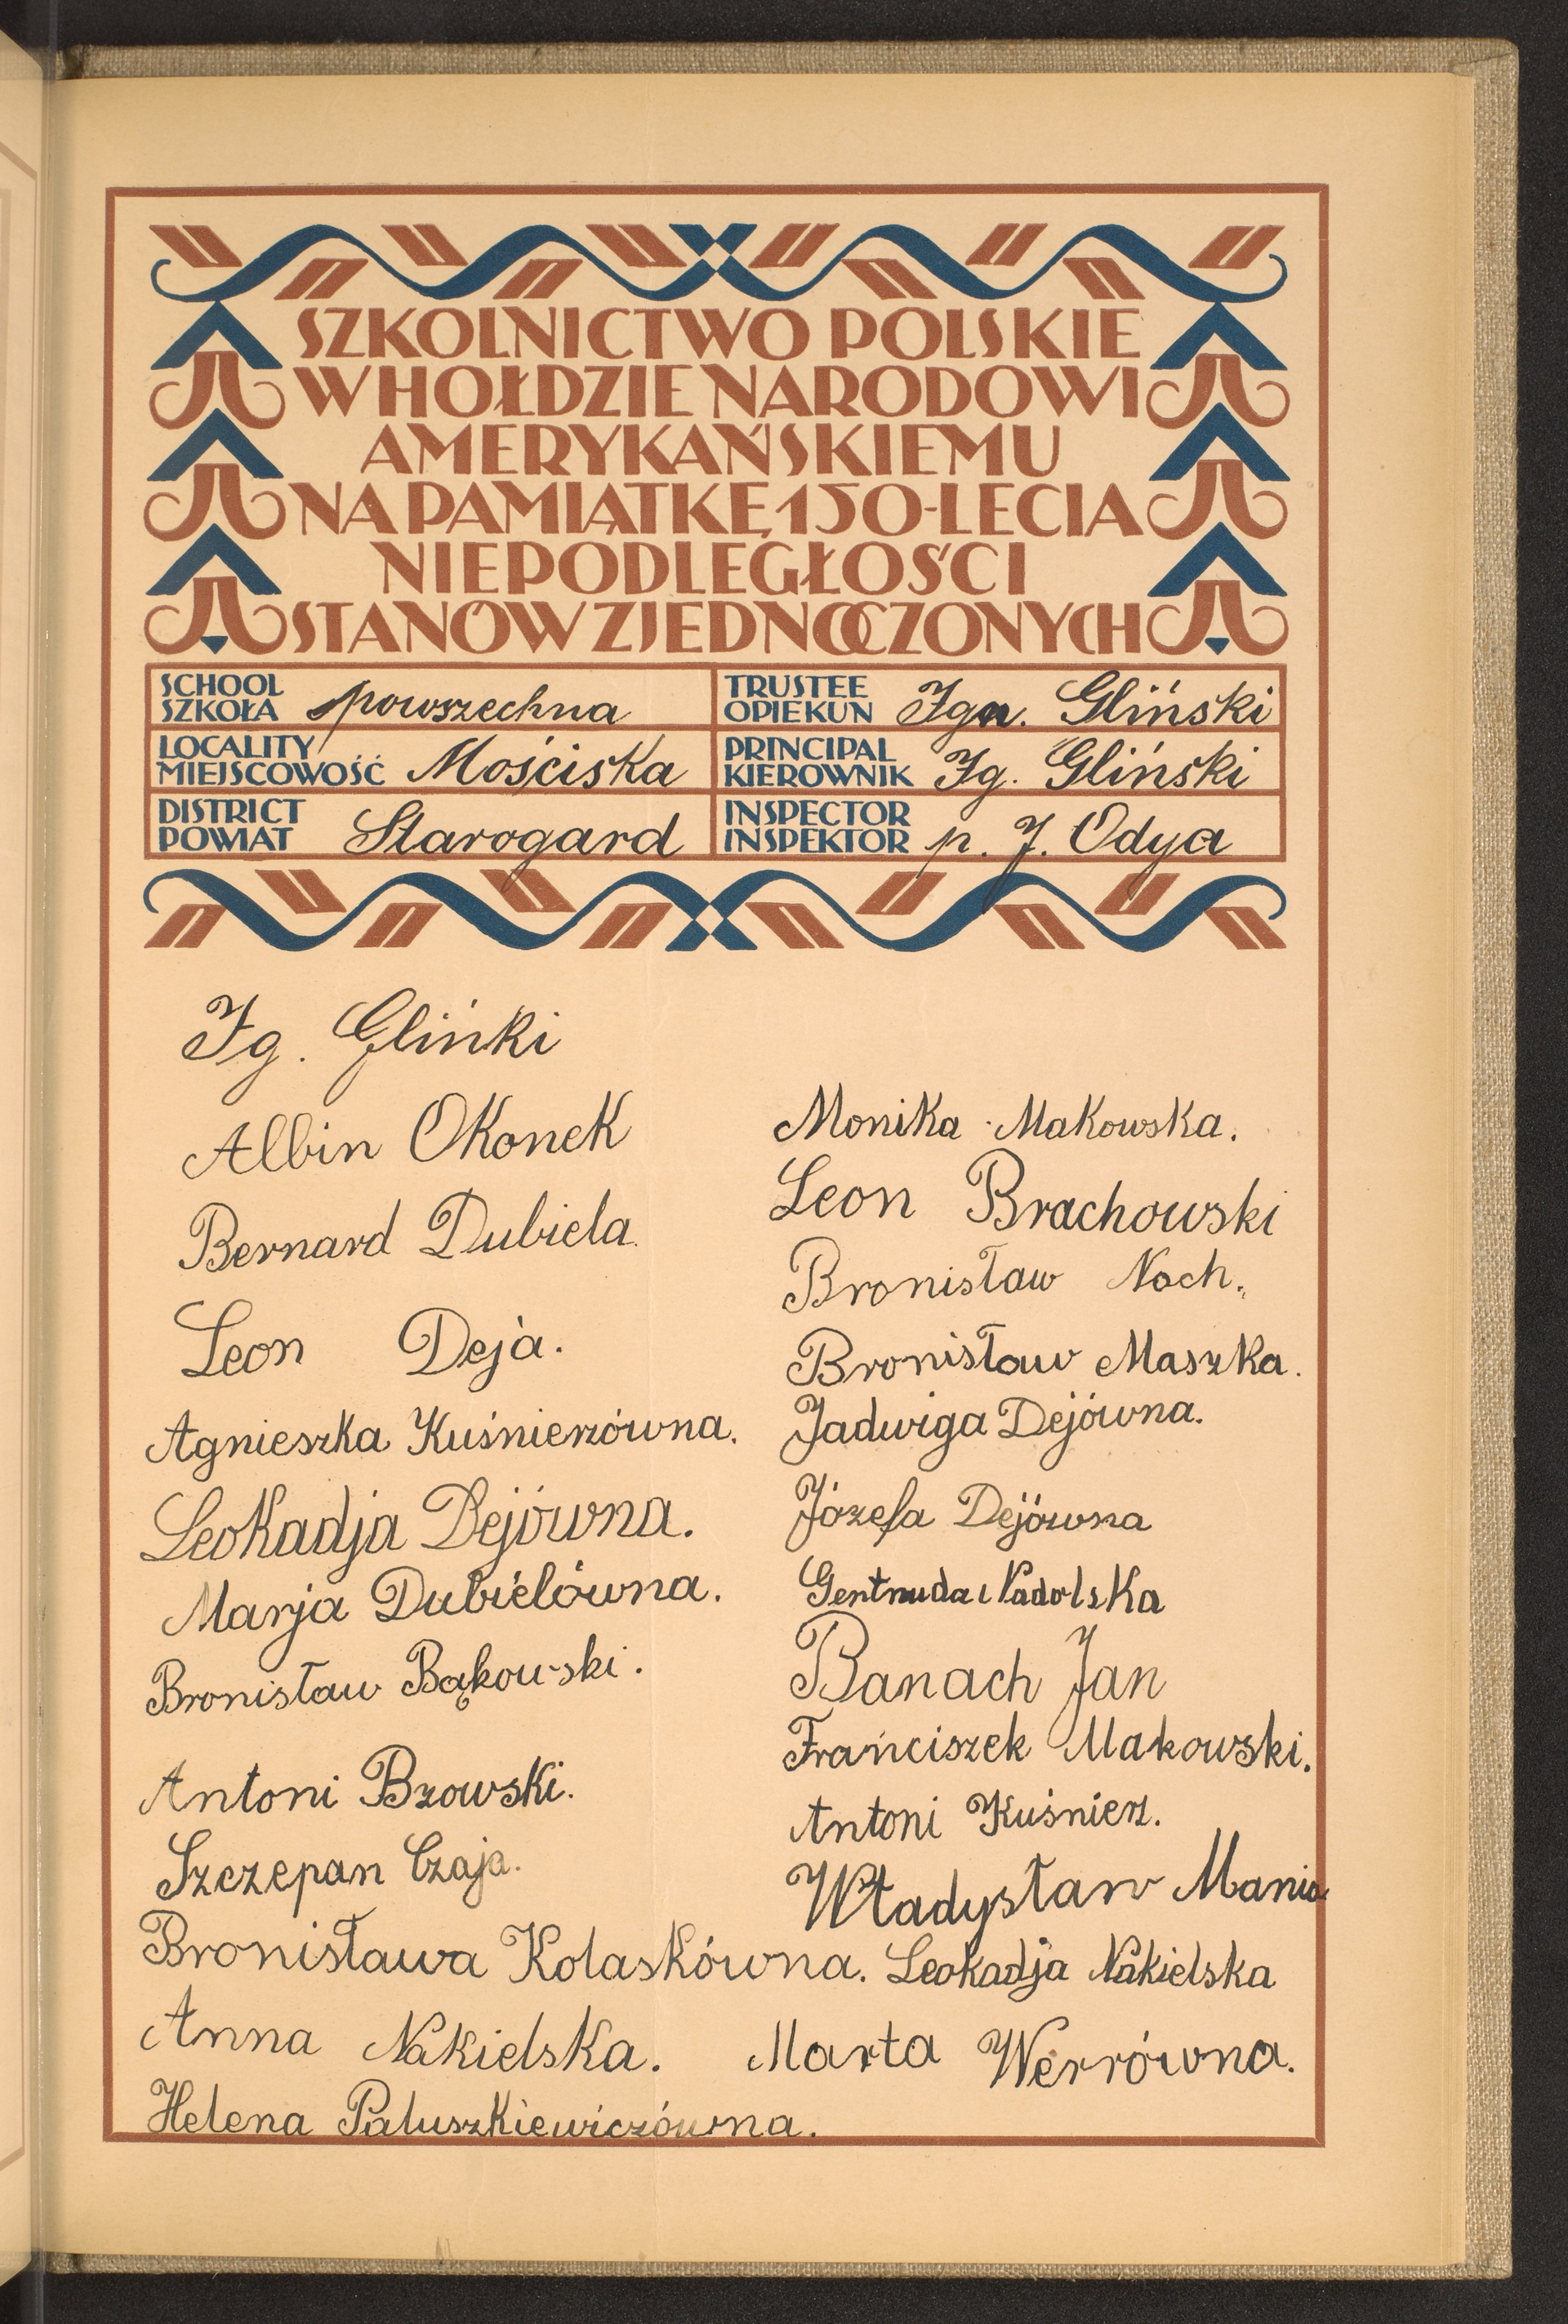 SZKOLNICTWO POLSKIE
W HOŁDZIE NARODOWI
AMERYKAŃSKIEMU
NA PAMIĄTKĘ 150-LECIA
NIEPODLEGŁOŚCI
STANÓW ZJEDNOCZONYCH
SCHOOL
SZKOŁA powszechna
TRUSTEE
OPIEKUN Ign. Gliński
LOCALITY
MIEJSCOWOŚĆ Mościska
PRINCIPAL
KIEROWNIK Ig. Gliński
DISTRICT
POWIAT Starogard
INSPECTOR
INSPEKTOR p. J. Odya
Ig. Glińki
Albin Okonek
Bernard Dubiela
Leon Deja.
Agnieszka Kuśnierzówna.
Leokadja Dejówna.
Marja Dubielówna.
Bronisław Bąkowski.
Antoni Bzowski.
Szczepan Czaja.
Bronisława Kolaskówna.
Anna Nakielska.
Helena Paluszkiewiczówna.
Monika Makowska.
Leon Brachowski
Bronisław Noch.
Bronisław Maszka.
Jadwiga Dejówna.
Józefa Dejówna
Gertruda Nadolska
Banach Jan
Frańciszek Makowski.
Antoni Kuśnierz.
Władysław Mania
Leokadja Nakielska
Marta Werrówna.